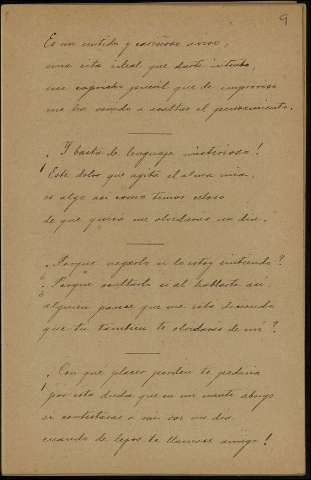 9
Es un sentido y cariñoso
una cita ideal que darte intento,
un capricho juvenil que de improviso
me ha venido a asaltar el pensamiento.
¡Y basta de lenguaje misterioso!
Este dolor que agita el alma mia,
es algo asi como temor celoso
de que quieras me olvidaras un dia.
¿Porque negarlo si lo estoy sintiendo?
¿Porque ocultarlo si al hablarte asi,
alguien parece que me está diciendo
que tu tambien te olvidaras de mi?
¡Con que placer perdon te pediria
por esta duda que en mi mente abrigo
si contestaras a mi voz un dia
cuando de lejos te llamara amigo!